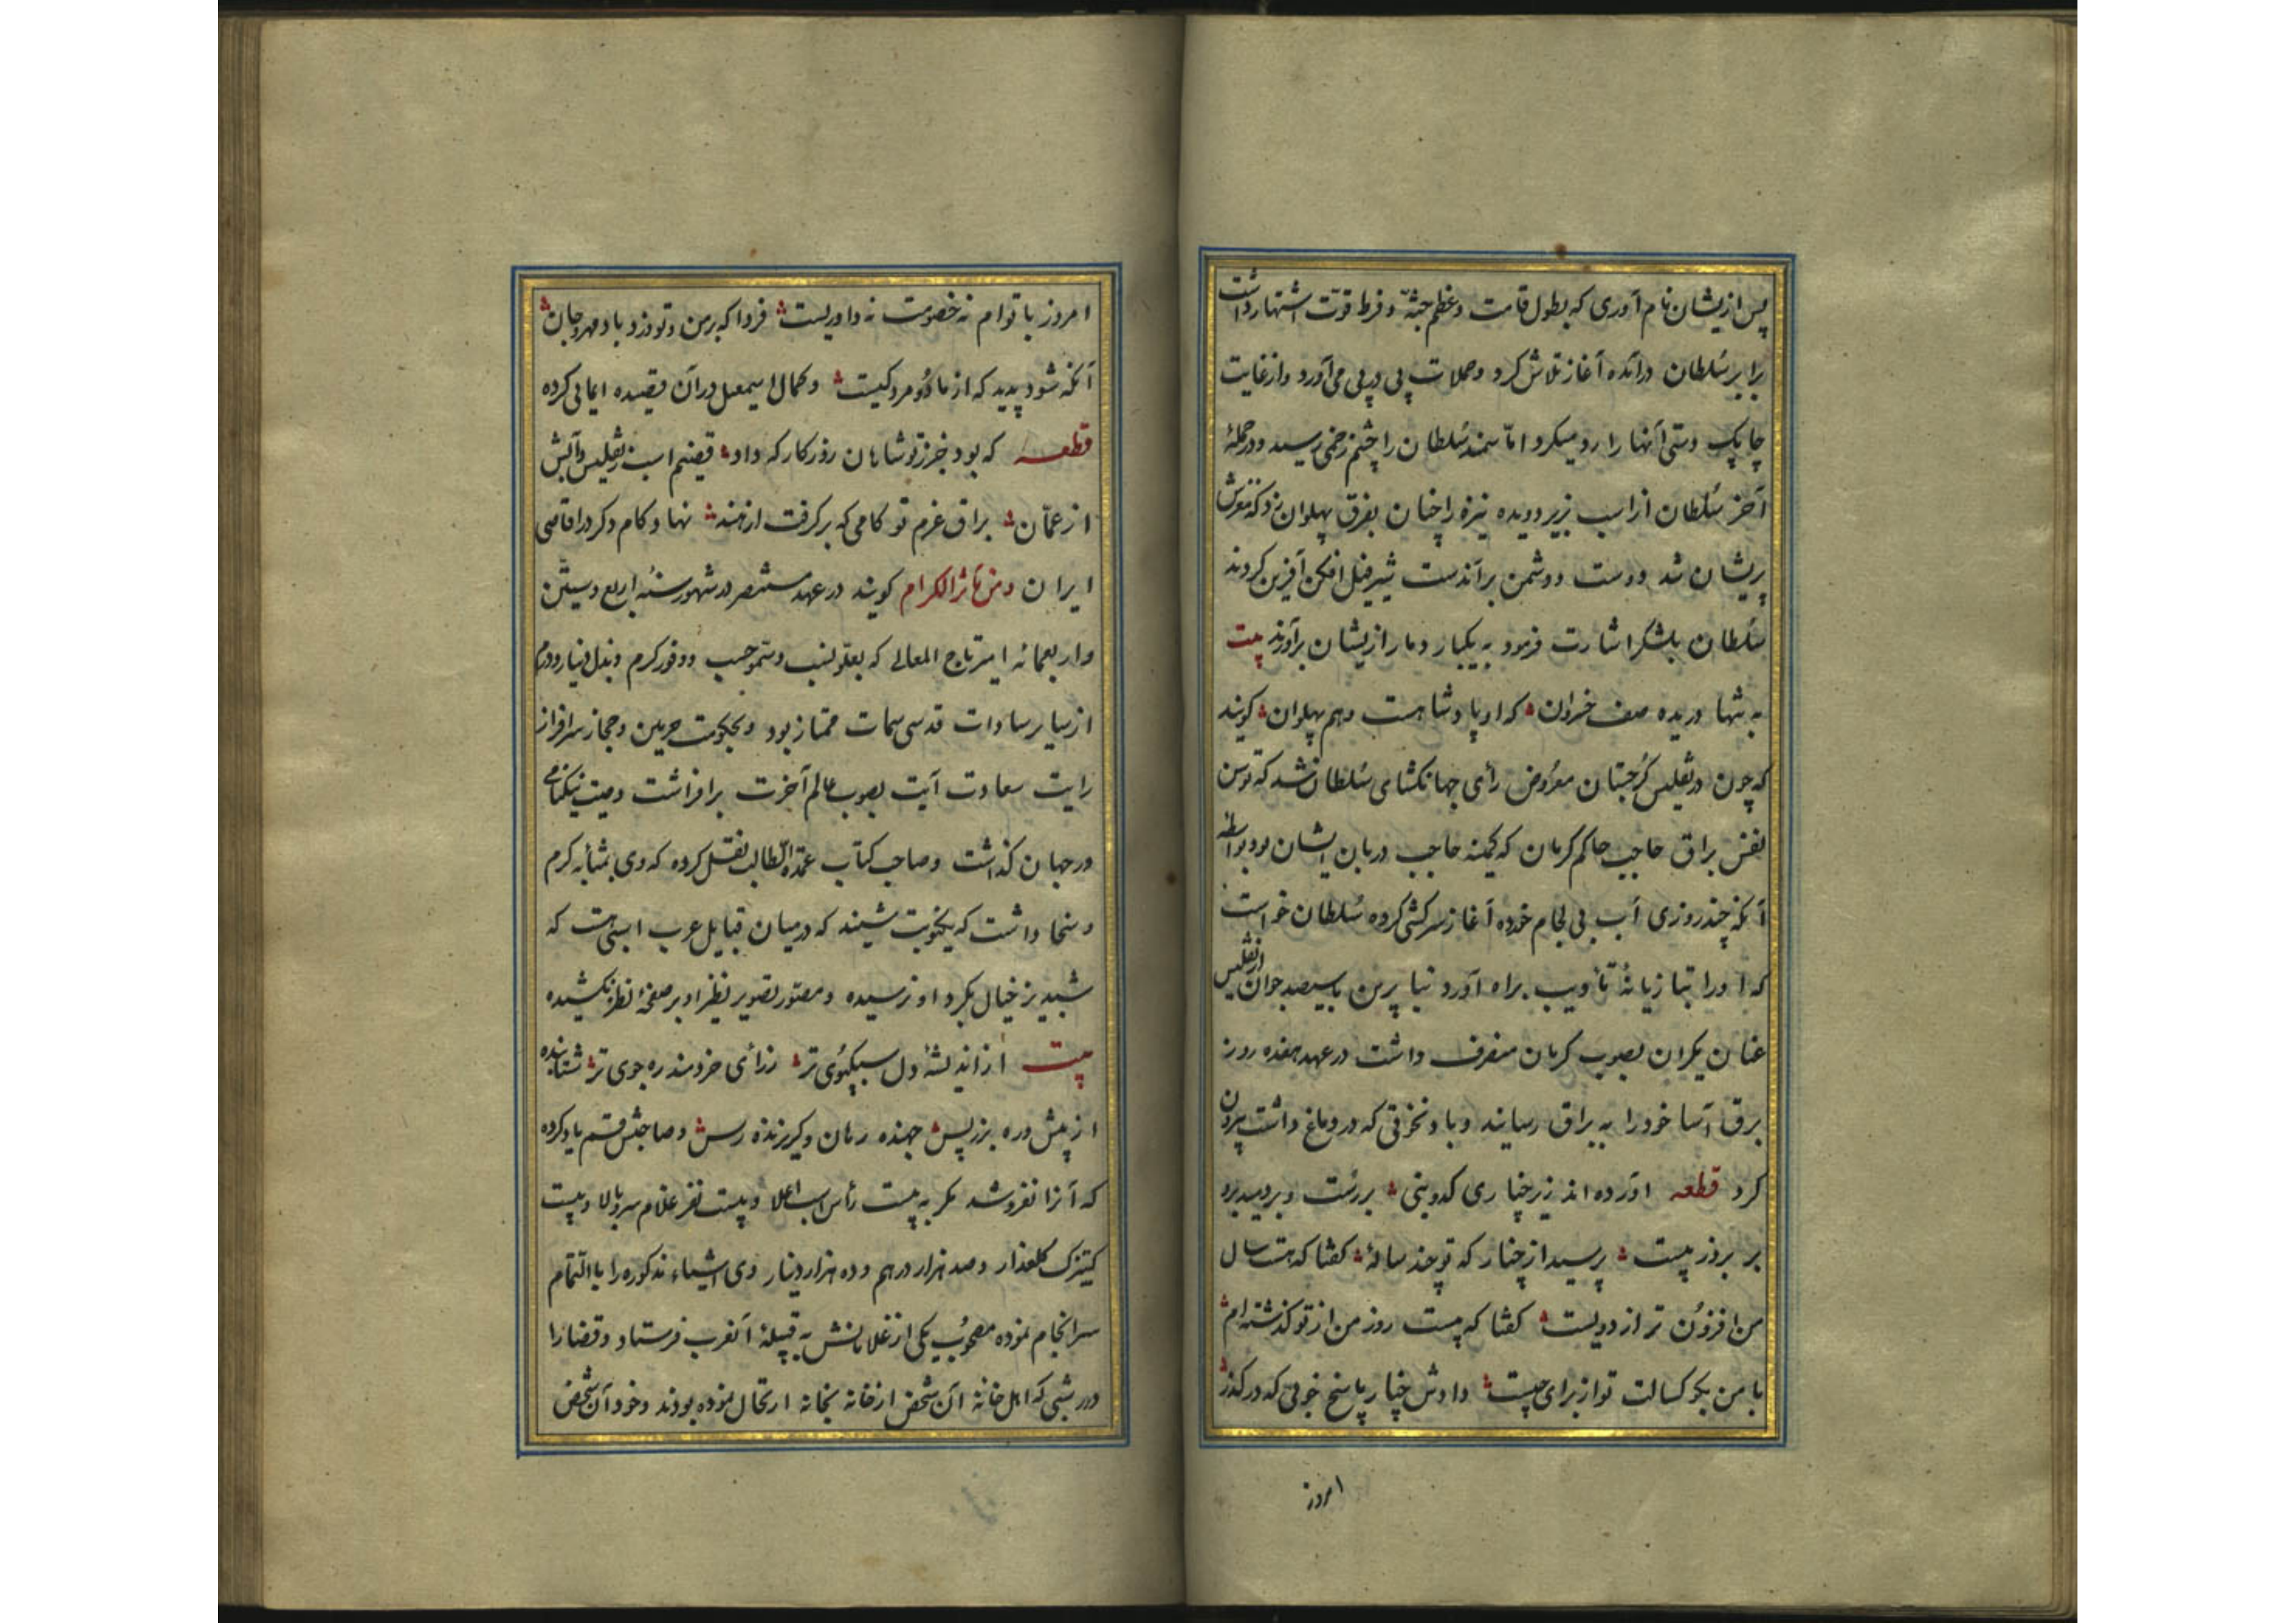 پس ازیشان نام آوری که بطول قامت وعظم جثه و فرط قوت اشتهار داشت
برابر سلطان درآمده آغاز تلاش کرد وحملات پی در پی می آورد واز غایت
چابک دستی آنها را رد میکرد اما سمند سلطان را چشم زخمی رسید ودر حملهٔ
آخر سلطان از اسب بزیر دویده نیزه را چنان بفرق پهلوان زد که مغزش
پریشان شد ودوست ودشمن برآن دست شیر فیل افکن آفرین کردند
سلطان بلشکر اشارت فرمود به یکبار دمار ازیشان برآورند بیت
به تنها دریده صف خسروان که او پادشاهست وهم پهلوان کویند
که چون در تفلیس کرجستان معروض رأی جهانکشای سلطان شد که توسن
نفس براق حاجب حاکم کرمان که کمینه حاجب دربان ایشان بود بواسطه
آنکه چند روزی آب بی لجام خورده آغاز سرکشی کرده سلطان خواست
که او را بتازیانهٔ تأدیب براه آورد بنا برین با سیصد جوان از تفلیس
عنان یکران بصوب کرمان منصرف داشت در عهد هفده روز
برق آسا خود را به براق رسانید وباد نخوتی که در دماغ داشت بیرون
کرد قطعه آورده اند زیر چناری کدوبنی بررست وبردمید برو
بر بروز بیست پرسید از چنار که تو چند سالهٔ کفتا که هست سال
من افزون تر از دویست کفتا که بیست روز من از تو کذشته ام
با من بکو کسالت تو از برای چیست دادش چنار پاسخ خوبی که در کذر
امروز
امروز با توام نه خصومت نه داوریست فردا که بر من وتو وزد باد مهرجان
آنکه شود پدید که از ما دو مرد کیست وکمال اسمعیل در آن قصیده ایمائی کرده
قطعه که بود جز تو شاهان روزکار که داد قضیم اسب ز تفلیس وآبش
از عمان براق عزم تو کامی که برکرفت از هند نهاد کام دکر در اقاصی
ایران ومن مآثر الکرام کویند در عهد مستنصر در شهور سنهٔ اربع وستین
واربعمائه امیر تاج المعالی که بعلو نسب وسمو حسب ووفور کرم وبذل دینار ودرم
از سایر سادات قدسی سمات ممتاز بود وبحکومت حرمین وحجاز سرافراز
رایت سعادت آیت بصوب عالم آخرت برافراشت وصیت نیکنامی
در جهان کذاشت وصاحب کتاب عمدة الطالب نقل کرده که وی بمثابه کرم
وسخا داشت که یکنوبت شنید که در میان قبایل عرب اسبی هست که
شبدیز خیال بکرد او نرسیده ومصور تصویر نظیر او بر صفحهٔ نظر نکشیده
بیت از اندیشهٔ دل سبکپوی تر ز رأی خردمند ره جوی تر شتابنده
از پیش وره بر ز پس جهنده رمان وکریزنده رس وصاحبش قسم یاد کرده
که آنرا نفروشد مکر به بیست رأس اسب اعلا وبیست نفر غلام سروبالا وبیست
کنیزک کلعذار وصد هزار درهم وده هزار دینار وی اشیاء مذکوره را بالتمام
سرانجام نموده مصحوب یکی از غلامانش به قبیلهٔ آنعرب فرستاد وقضا را
در شبی که اهل خانه آن شخص از خانه بخانه ارتحال نموده بودند وخود آن شخص